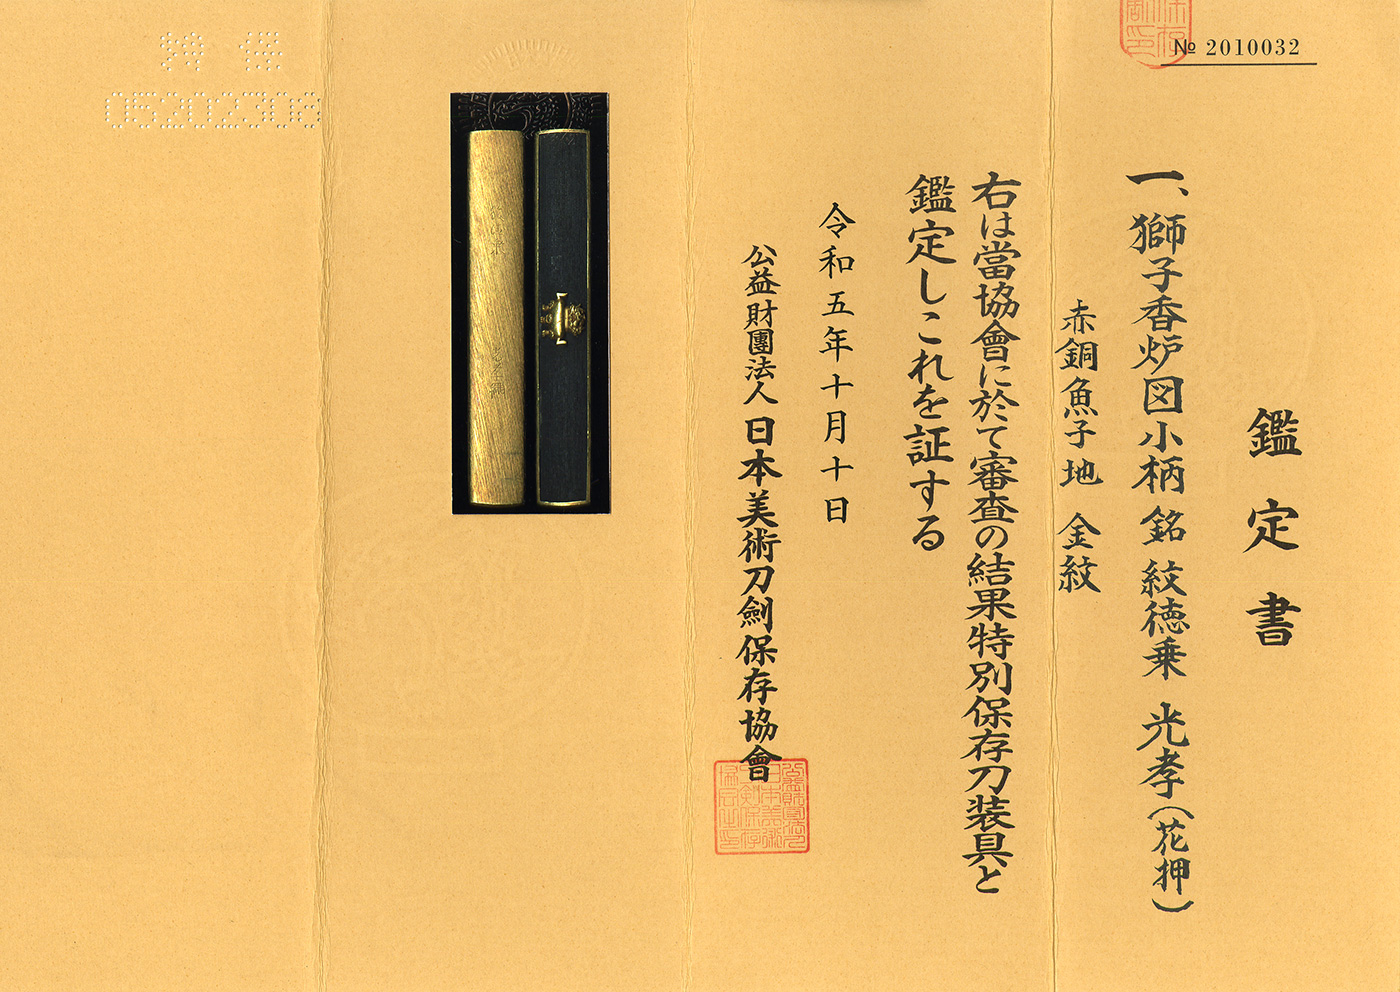 № 2010032
鑑定書
一、獅子香炉図小柄 銘 紋徳乗 光孝(花押)
赤銅魚子地 金紋
右は當協會に於て審査の結果特別保存刀装具と
鑑定しこれを証する
令和五年十月十日
公益財團法人 日本美術刀劍保存協會
05202308